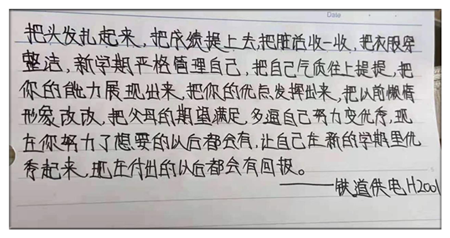 Date
把头发扎起来,把成绩提上去,把脏话收一收,把衣服穿
整洁,新学期严格管理自己,把自己气质往上提提,把
你的能力展现出来,把你的优点发挥出来,把以前懒惰
形象改改,把父母的期望满足,多逼自己努力变优秀,现
在你努力了想要的以后都会有,让自己在新的学期里优
秀起来,现在付出的以后都会有回报。
——铁道供电H2001